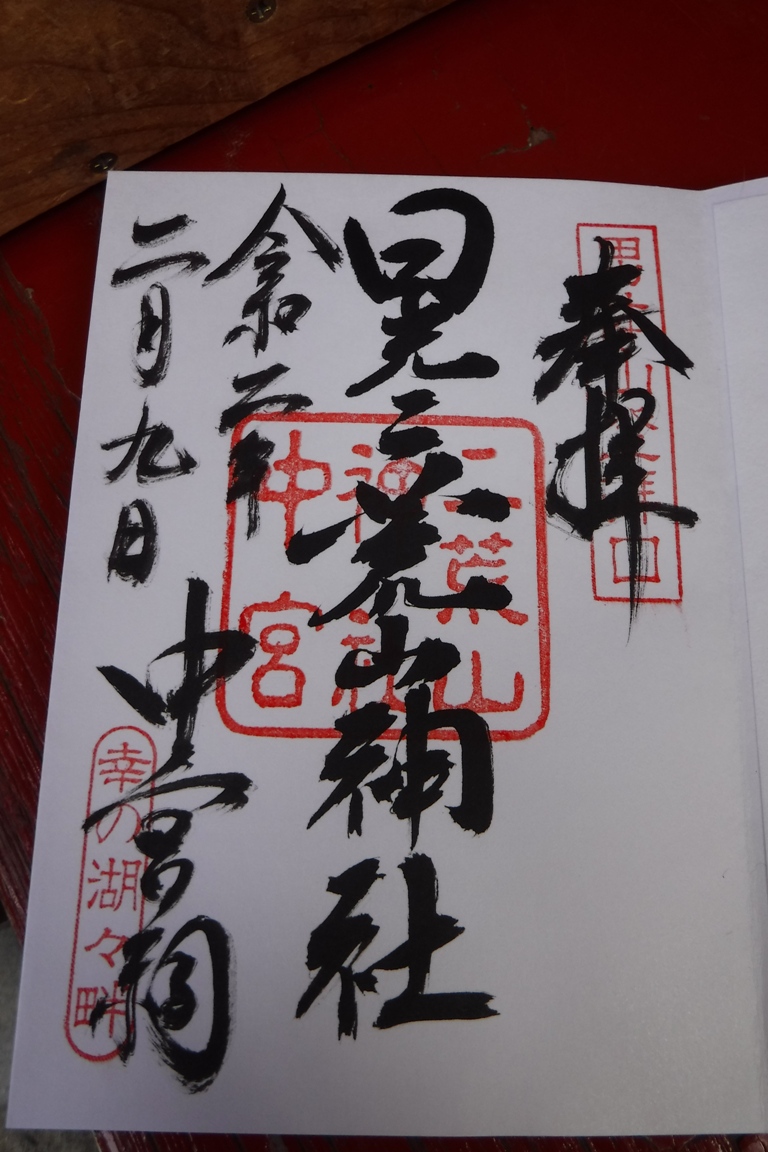 奉拝
男体山登拝口
日光二荒山神社
二荒山
神社
中宮
令和二年
二月九日
中宮祠
幸の湖々畔